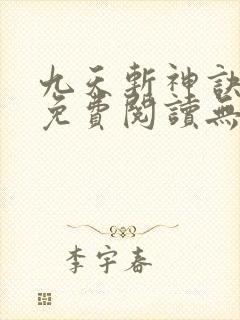 九天斬神訣
免費閱讀無
李宇春